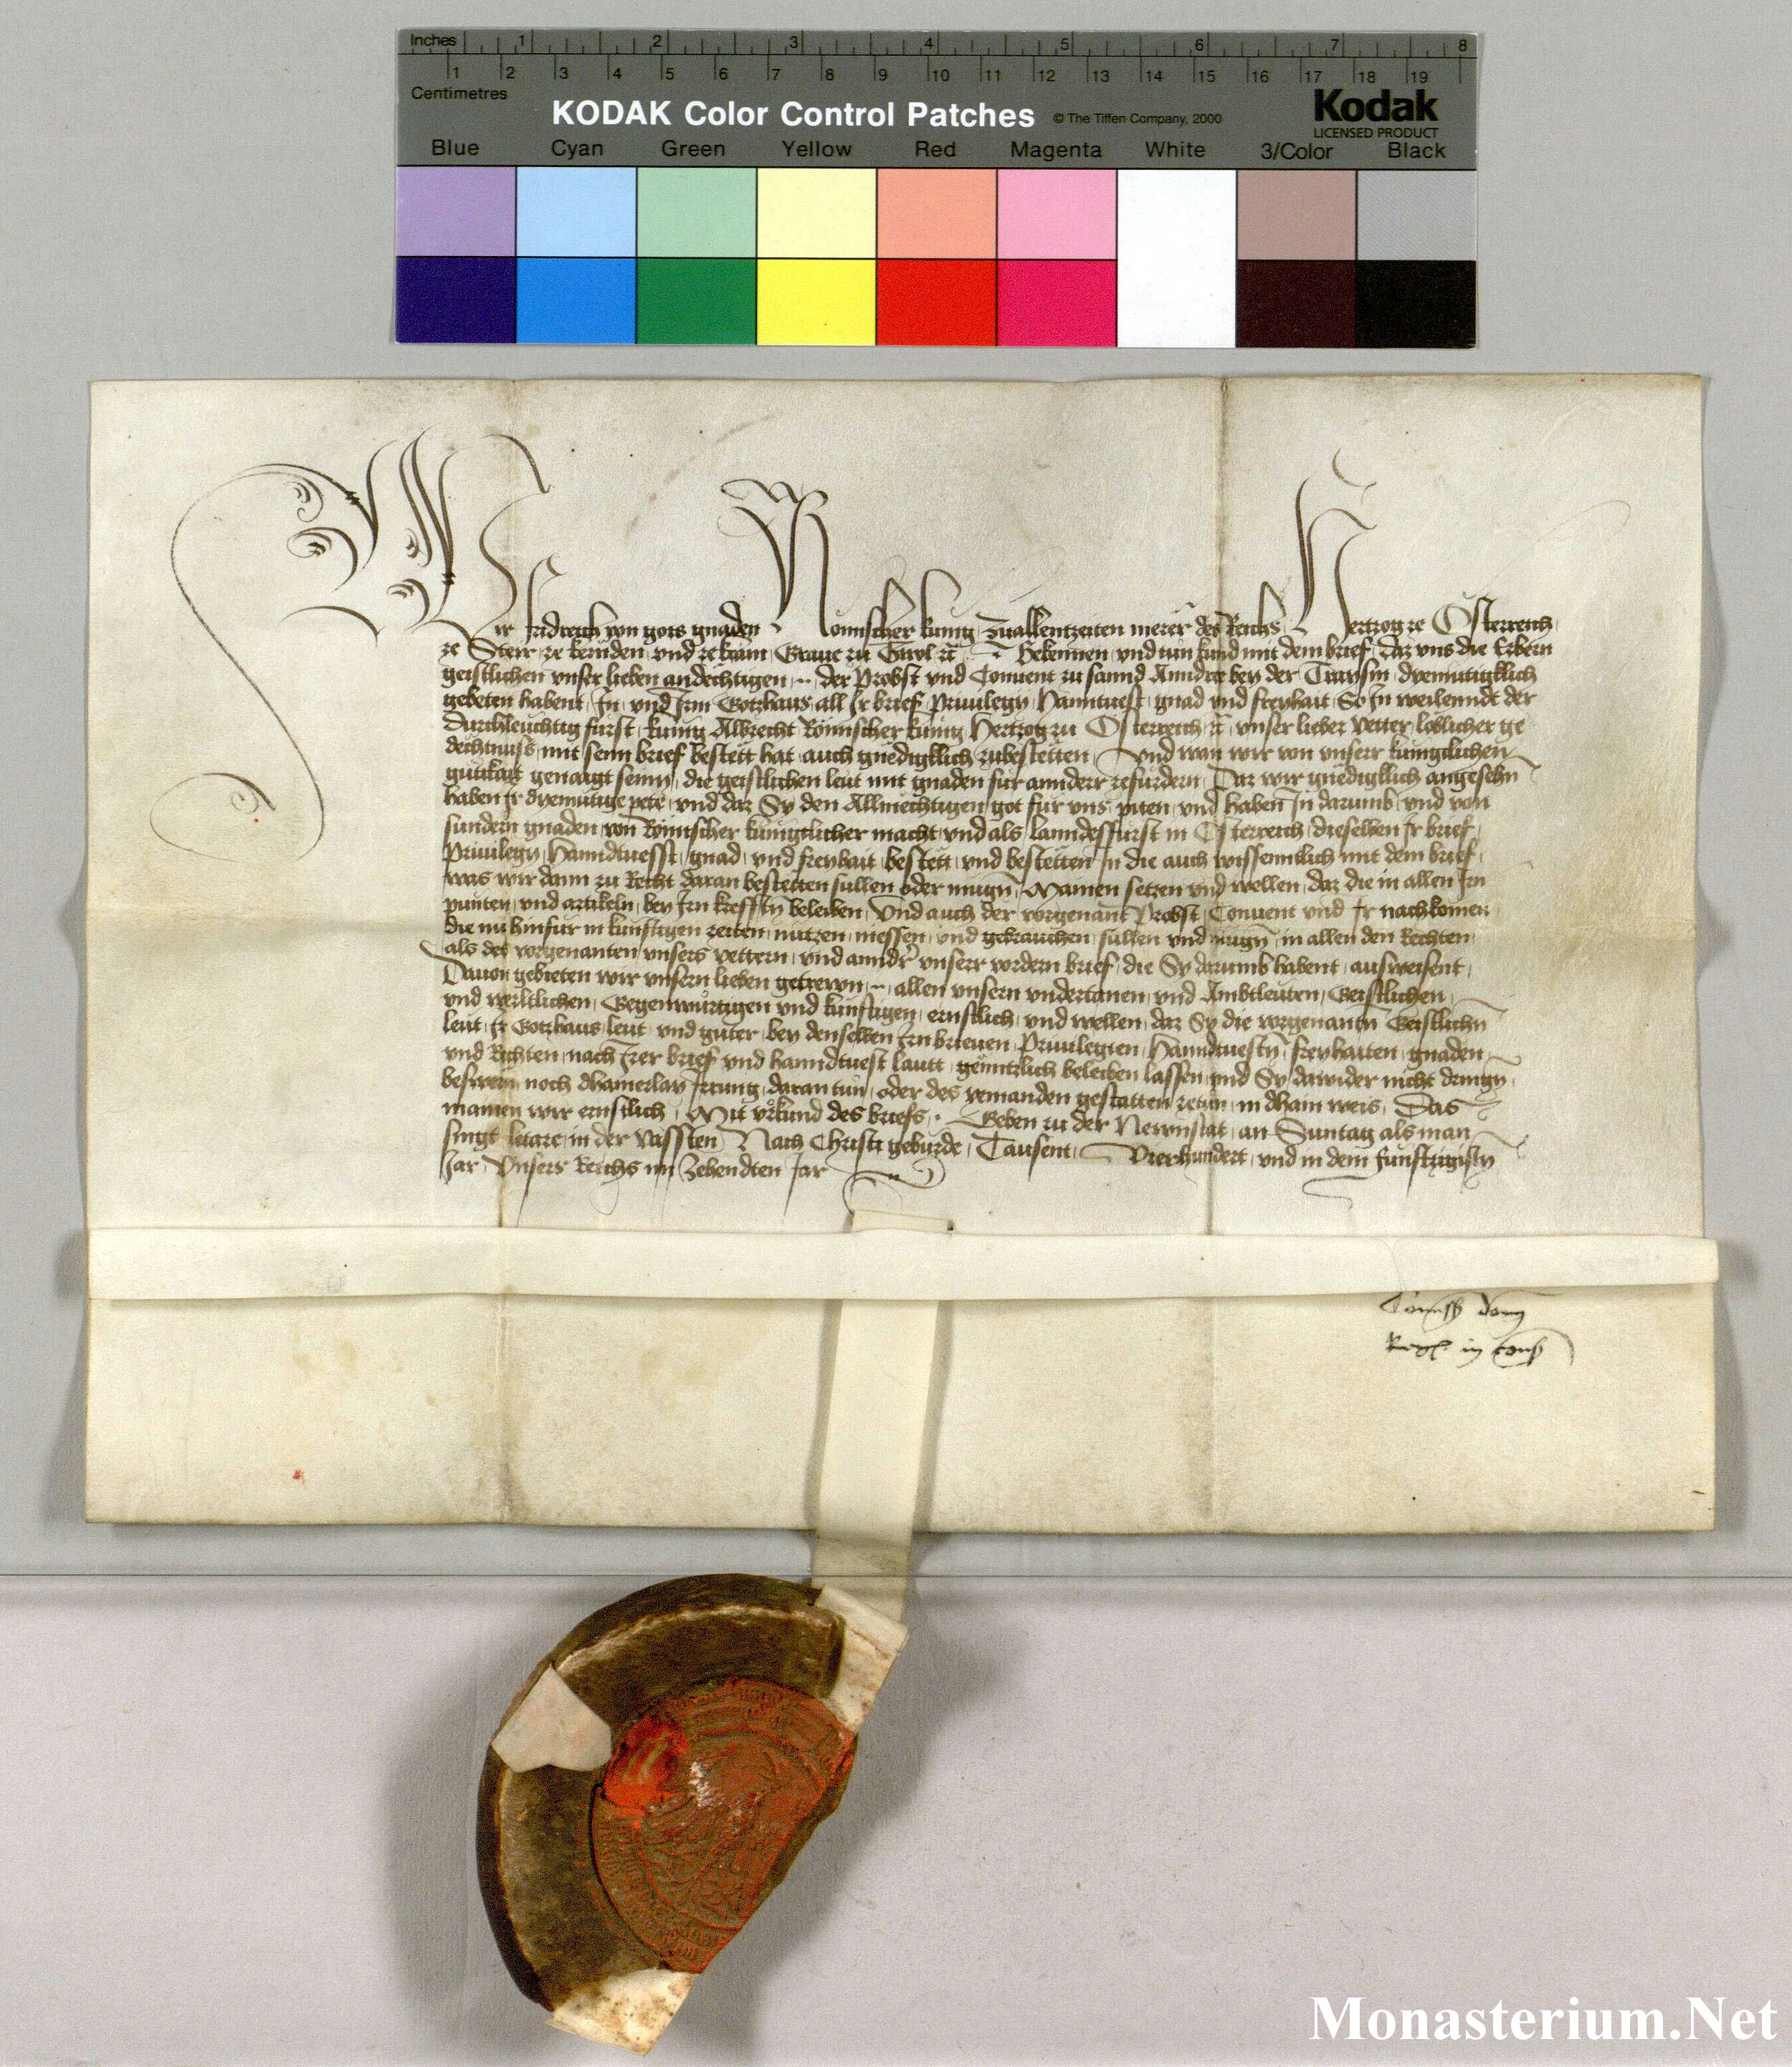 Inches 1 2 3 4 5 6 7 8
1 2 3 4 5 6 7 8 9 10 11 12 13 14 15 16 17 18 19
Centimetres
KODAK Color Control Patches © The Tiffen Company, 2000 Kodak
LICENSED PRODUCT
Blue Cyan Green Yellow Red Magenta White 3/Color Black
Wir Fridreich von gots gnaden Römischer kunig Zuallentzeiten merer des Reichs Hertzog ze Österreich
ze Steir ze kernden und ze krain Graue zu Tirol etc Bekennen und tun kund mit dem brief Daz uns die Erbern
geistlichen unser lieben andechtigen der Probst und Conuent zu sannd Anndree bey der Traysm dyemutigklich
gebeten habent In und Irm Gotzhaus all Ir brief Priuilegy Hanntuest gnad und freyhait So In weilenndt der
durchleuchtig furst kunig Albrecht Römischer kunig Hertzog zu Österreich etc unser lieber Vetter loblicher ge
dechtnuss mit seim brief bestett hat auch gnedigklich zubestetten Und wan wir von unserr kunigtlichen
gutikait genaigt seinn die geistlichen leut mit gnaden fur annderr zefurdern Daz wir gnedigklich angesehn
haben Ir dyemutige pete und daz Sy den Allmechtigen got fur uns piten und haben In darumb und von
sundern gnaden von Römischer kunigtlicher macht und als lanndesfurst in Österreich dieselben Ir brief
Priuilegy Hanndtuesst gnad und freyhait bestett und bestetten In die auch wissenntlich mit dem brief
was wir dann zu Recht daran bestetten sullen oder mugn Mainen setzen und wellen daz die in allen Irn
punten und artikeln bey Irn krefftn beleiben Und auch der vorgenant Probst Conuent und Ir nachkomen
die nu hinfur in kunftigen zeiten nutzen niessen und gebrauchen sullen und mugn in allen den Rechten
als des vorgenanten unsers vettern und anndr unserr vordern brief die Sy darumb habent ausweisent
Dauon gebieten wir unsern lieben getrewn allen unsern undertanen und Ambtleuten Geistlichen
und werltlichen Gegenwurtigen und kunftigen ernstlich und wellen daz Sy die vorgenantn Geistlichn
leut Ir Gotzhaus leut und guter bey denselben Irn brieuen Priuilegien Hanndtuestn freyhaiten gnaden
und Rechten nach Irer brief und hanndtuest lautt genntzlich beleiben lassen und Sy dawider nicht dringn
beswern noch dhainerlay Irrung daran tun oder des yemanden gestatten zetun in dhain weis Das
mainen wir ernstlich Mit urkund des briefs Geben zu der Newnstat an Suntag als man
singt letare in der Vassten Nach Christi geburde Tausent Vierhundert und in dem funftzigistn
Jar Unsers Reichs im Zehendten Jar
Comiss domj
Regis in cons
Monasterium.Net